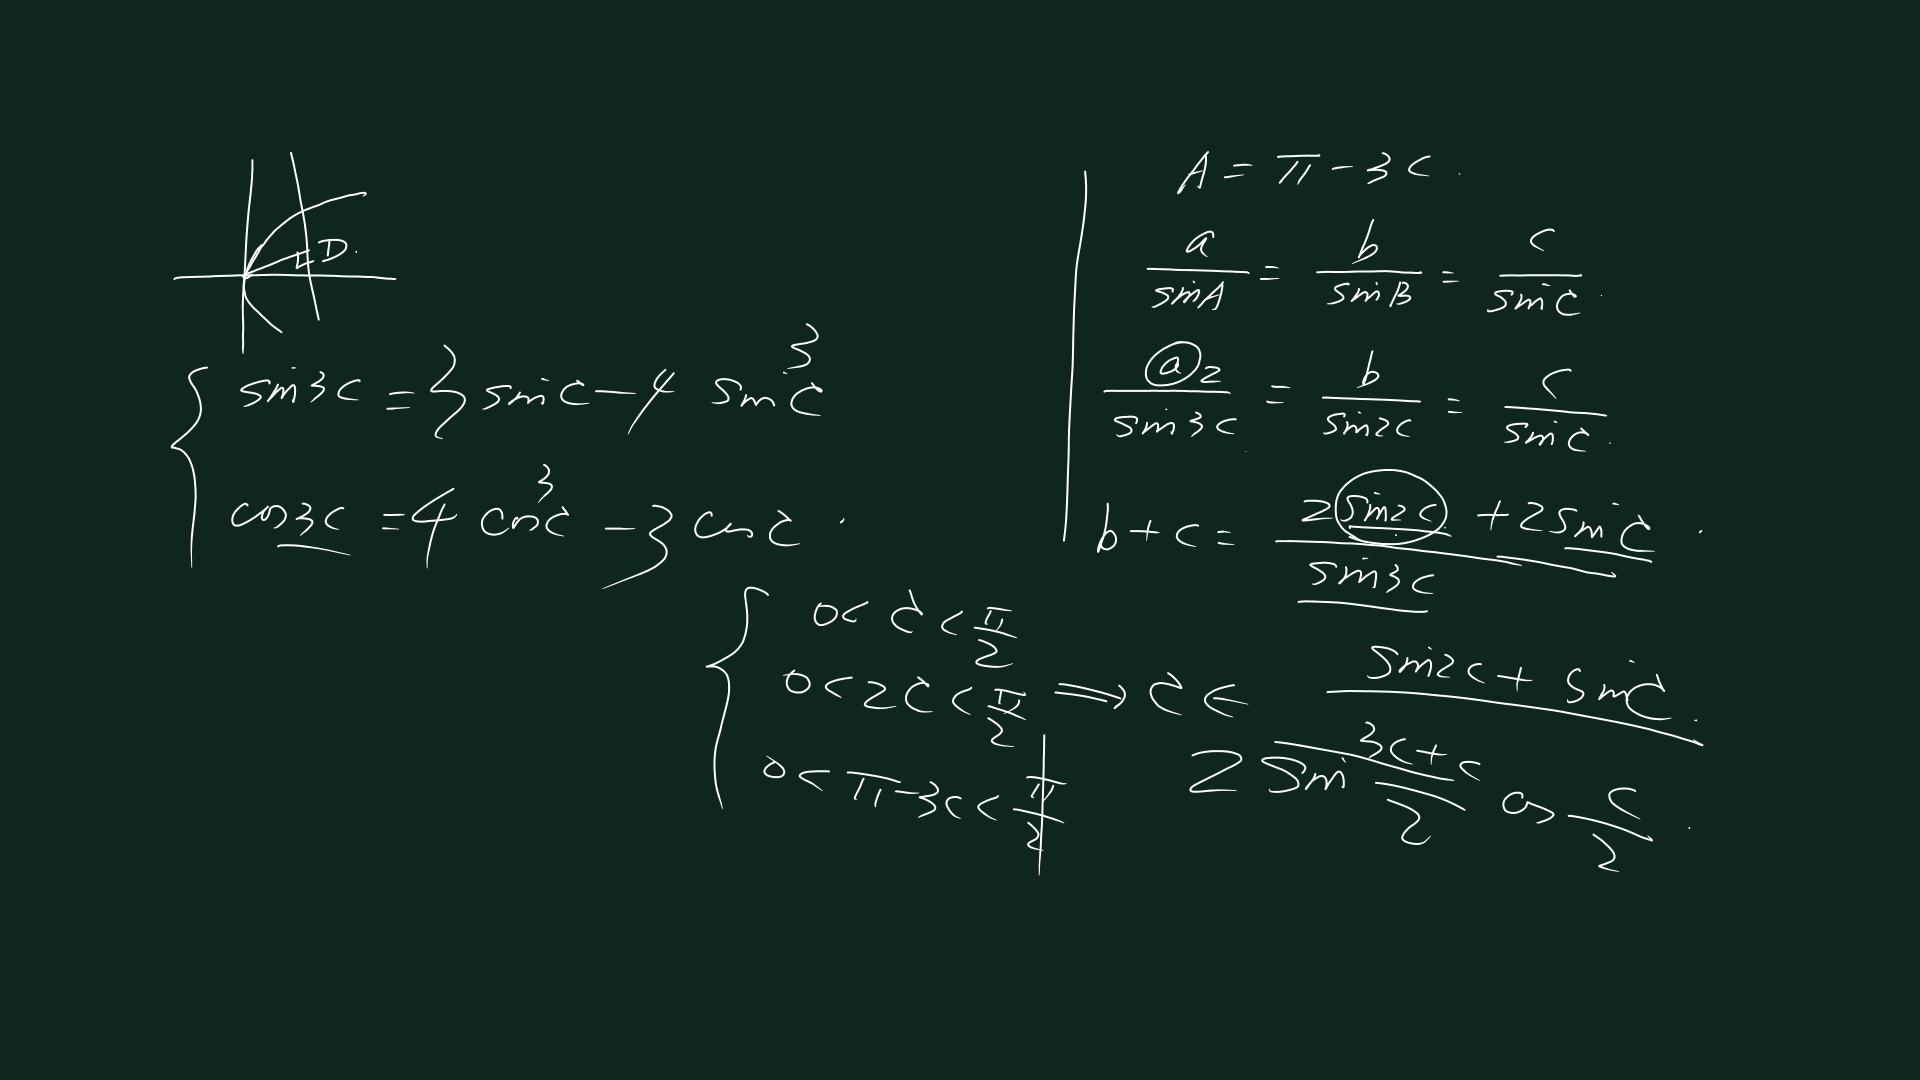 D.
sin3C = 3 sinC - 4 sin³C
cos3C = 4 cos³C - 3 cosC.
A = π - 3C.
a/sinA = b/sinB = c/sinC.
a2/sin3C = b/sin2C = c/sinC.
b + c = (2sin2C + 2sinC)/sin3C.
0 < C < π/2
0 < 2C < π/2 ⟹ C ∈
0 < π - 3C < π/2
sin2C + sinC.
2 sin (3C+C)/2 cos C/2.